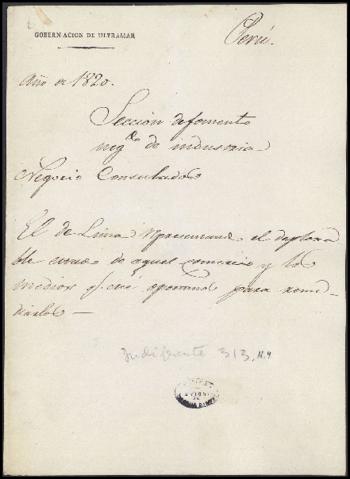 GOBERNACION DE ULTRAMAR
Perú.
Año de 1820.
Seccion de fomento
neg.do de industria
Negocio Consulados
El de Lima representando el deplora
ble estado de aquel comercio y los
medios q. cré oportunos para reme-
diarlo —
Indiferente 313, N.4